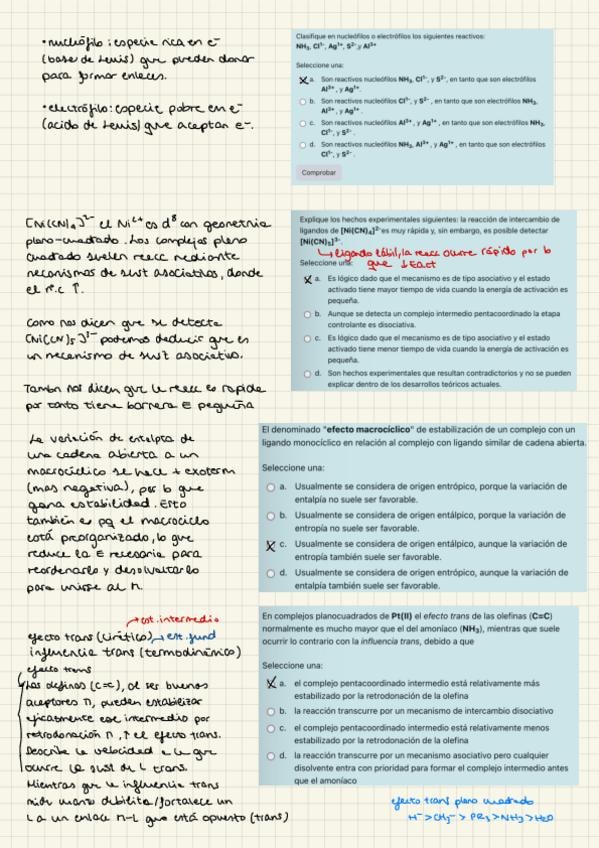 • nucleófilo: especie rica en e⁻
(base de Lewis) que pueden donar
para formar enlaces.
• electrófilo: especie pobre en e⁻
(acido de Lewis) que aceptan e⁻.
Clasifique en nucleófilos o electrófilos los siguientes reactivos:
NH₃, Cl¹⁻, Ag¹⁺, S²⁻ y Al³⁺
Seleccione una:
a. Son reactivos nucleófilos NH₃, Cl¹⁻, y S²⁻, en tanto que son electrófilos
Al³⁺, y Ag¹⁺.
b. Son reactivos nucleófilos Cl¹⁻, y S²⁻, en tanto que son electrófilos NH₃,
Al³⁺, y Ag¹⁺.
c. Son reactivos nucleófilos Al³⁺, y Ag¹⁺, en tanto que son electrófilos NH₃,
Cl¹⁻, y S²⁻.
d. Son reactivos nucleófilos NH₃, Al³⁺, y Ag¹⁺, en tanto que son electrófilos
Cl¹⁻, y S²⁻.
Comprobar
[Ni(CN)₄]²⁻ el Ni²⁺ es d⁸ con geometria
plano-cuadrado. Los complejos plano
cuadrado suelen reacc mediante
mecanismos de sust asociativos, donde
el nº.c ↑.
Como nos dicen que se detecta
[Ni(CN)₅]³⁻ podemos deducir que es
un mecanismo de sust asociativo.
Tambn nos dicen que la reacc es rapida
por tanto tiene barrera E pequeña
Explique los hechos experimentales siguientes: la reacción de intercambio de
ligandos de [Ni(CN)₄]²⁻ es muy rápida y, sin embargo, es posible detectar
[Ni(CN)₅]³⁻.
↳ ligando lábil, la reacc ocurre rápido por lo
Seleccione una: que ↓Eact
a. Es lógico dado que el mecanismo es de tipo asociativo y el estado
activado tiene mayor tiempo de vida cuando la energía de activación es
pequeña.
b. Aunque se detecta un complejo intermedio pentacoordinado la etapa
controlante es disociativa.
c. Es lógico dado que el mecanismo es de tipo asociativo y el estado
activado tiene menor tiempo de vida cuando la energía de activación es
pequeña.
d. Son hechos experimentales que resultan contradictorios y no se pueden
explicar dentro de los desarrollos teóricos actuales.
La variación de entalpia de
una cadena abierta a un
macrocíclico se hace + exoterm
(mas negativa), por lo que
gana estabilidad. Esto
también es pq el macrociclo
está preorganizado, lo que
reduce la E necesaria para
reordenarlo y desolvatarlo
para unirse al M.
El denominado "efecto macrocíclico" de estabilización de un complejo con un
ligando monocíclico en relación al complejo con ligando similar de cadena abierta.
Seleccione una:
a. Usualmente se considera de origen entrópico, porque la variación de
entalpía no suele ser favorable.
b. Usualmente se considera de origen entálpico, porque la variación de
entropía no suele ser favorable.
c. Usualmente se considera de origen entálpico, aunque la variación de
entropía también suele ser favorable.
d. Usualmente se considera de origen entrópico, aunque la variación de
entalpía también suele ser favorable.
→ est. intermedio
efecto trans (cinético) → est. fund
influencia trans (termodinámico)
efecto trans
Las olefinas (C=C), al ser buenos
aceptores π, pueden estabilizar
eficazmente ese intermedio por
retrodonación π, ↑ el efecto trans.
Describe la velocidad a la que
ocurre la sust de L trans.
Mientras que la influencia trans
mide cuanto debilita/fortalece un
L a un enlace M-L que está opuesto (trans)
En complejos planocuadrados de Pt(II) el efecto trans de las olefinas (C=C)
normalmente es mucho mayor que el del amoníaco (NH₃), mientras que suele
ocurrir lo contrario con la influencia trans, debido a que
Seleccione una:
a. el complejo pentacoordinado intermedio está relativamente más
estabilizado por la retrodonación de la olefina
b. la reacción transcurre por un mecanismo de intercambio disociativo
c. el complejo pentacoordinado intermedio está relativamente menos
estabilizado por la retrodonación de la olefina
d. la reacción transcurre por un mecanismo asociativo pero cualquier
disolvente entra con prioridad para formar el complejo intermedio antes
que el amoníaco
efecto trans plano cuadrado
H⁻ > CH₃⁻ > PR₃ > NH₃ > H₂O